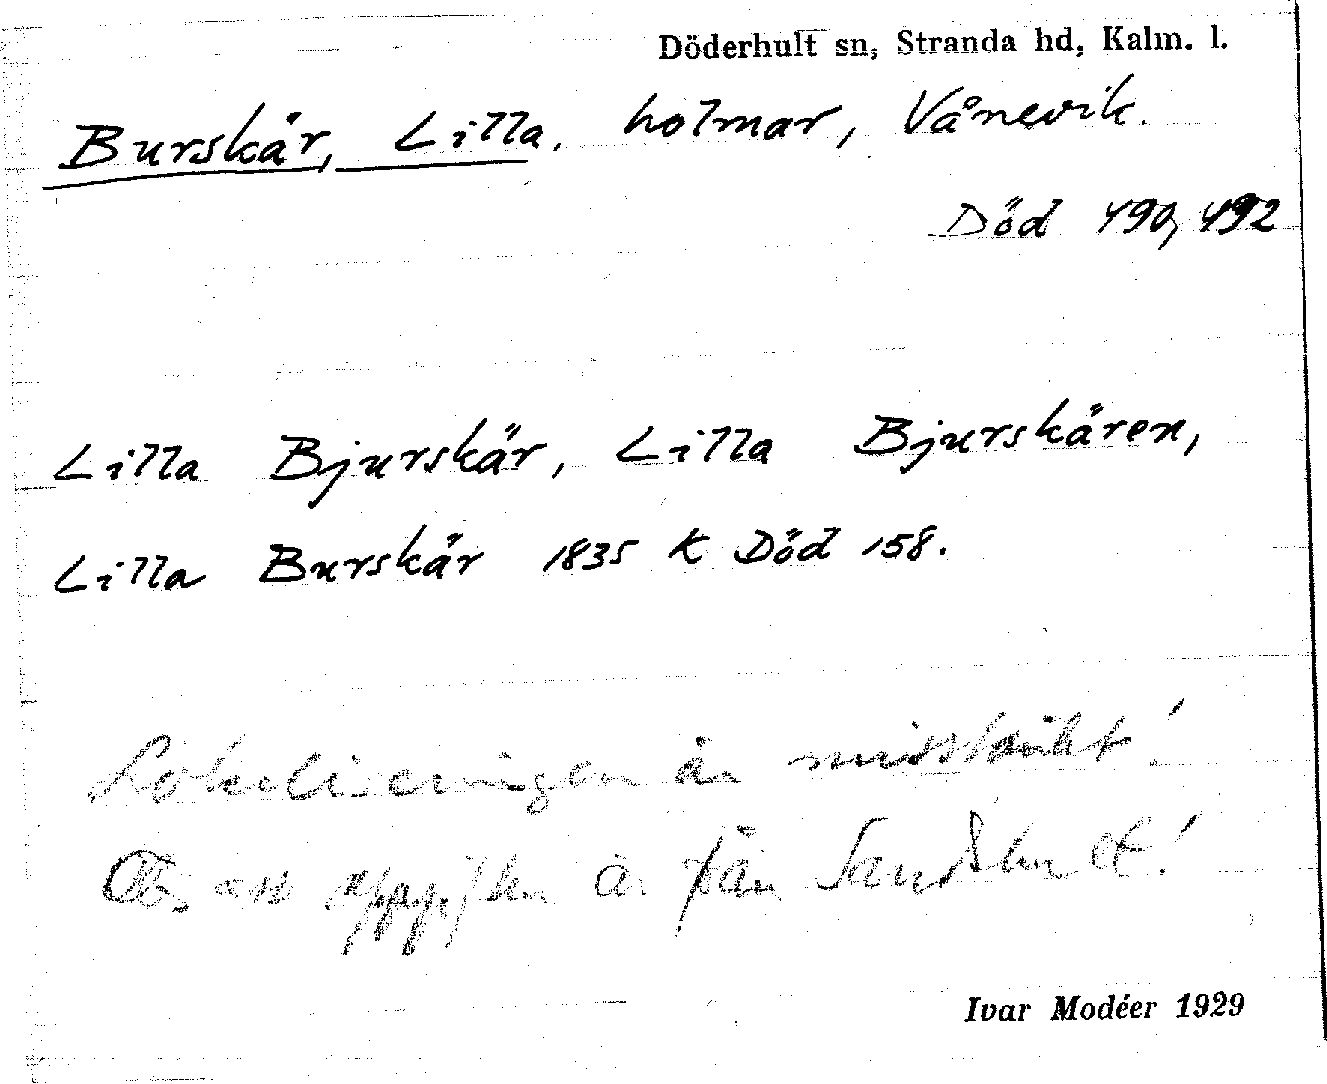 Döderhult sn, Stranda hd, Kalm. l.
Burskär, Lilla, holmar, Vånevik.
Död 490, 492
Lilla Bjurskär, Lilla Bjurskären,
Lilla Burskär 1835 K Död 158.
Lokaliseringen är misstänkt!
Obs att uppgiften är från
Ivar Modéer 1929